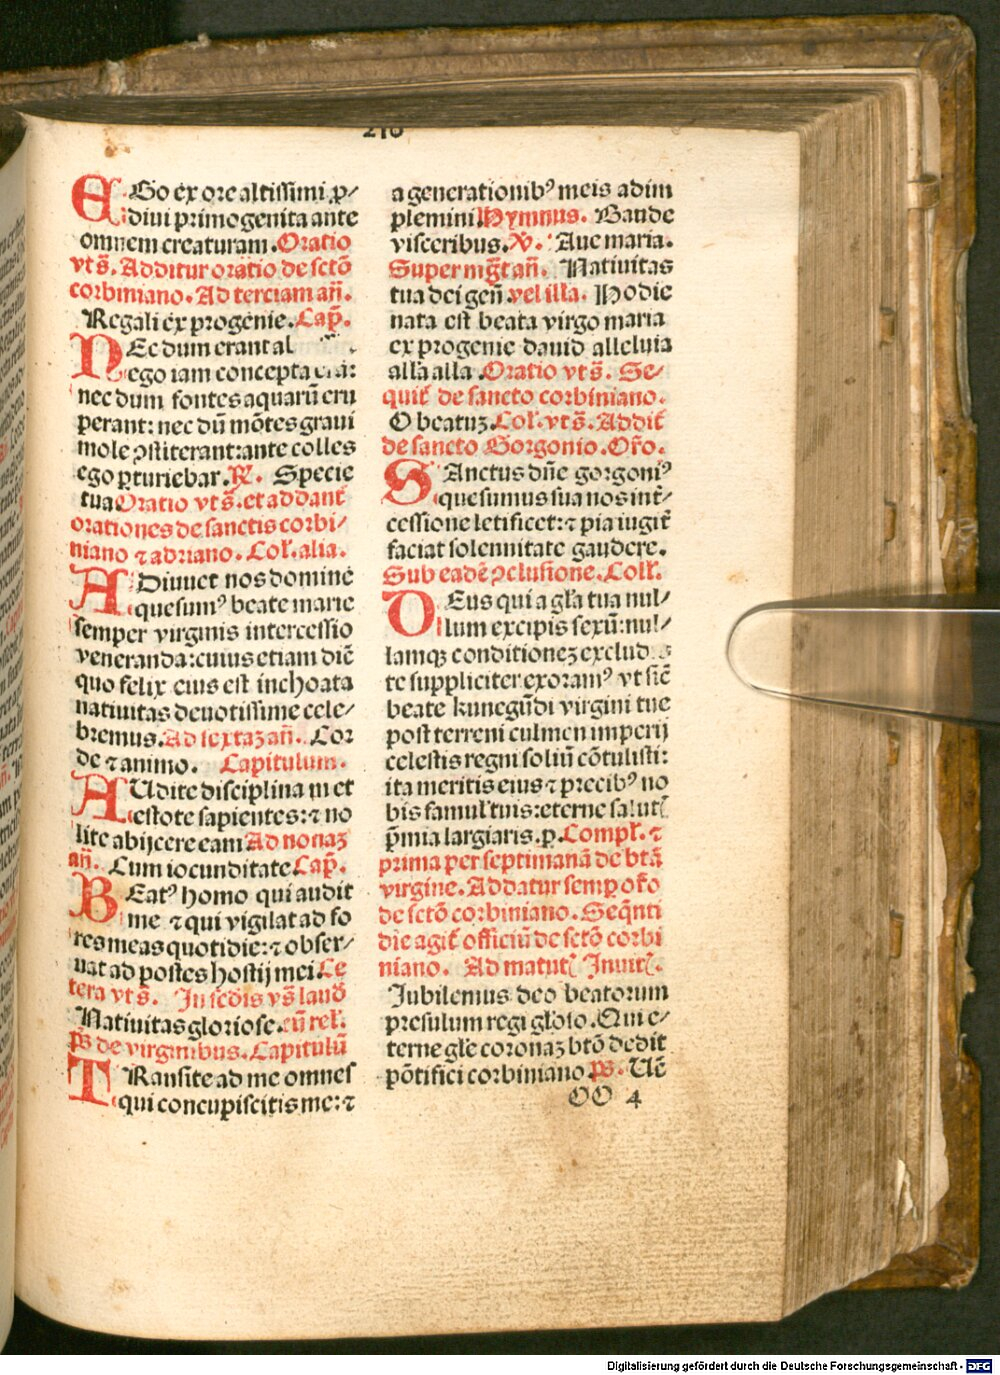 210
EGo ex ore altissimi ꝓ⸗
diui primogenita ante
omnem creaturam. Oratio
vts̄. Additur oratio de sctō
corbiniano. Ad terciam an̄.
Regali ex progenie. Cap̄.
NEc dum erant al
ego iam concepta
nec dum fontes aquarū eru
perant: nec dū mōtes graui
mole ꝯstiterant: ante colles
ego ꝑturiebar. R̄. Specie
tua Oratio vts̄. et addant̄
orationes de sanctis corbi⸗
niano ⁊ adriano. Coll̄. alia.
ADiuuet nos domine
quesumꝰ beate marie
semper virginis intercessio
veneranda: cuius etiam diē
quo felix eius est inchoata
natiuitas deuotissime cele⸗
bremus. Ad sextaꝫ an̄. Cor
de ⁊ animo. Capitulum.
AUdite disciplinam et
estote sapientes: ⁊ no
lite abijcere eam Ad nonaꝫ
an̄. Cum iocunditate Cap̄.
BEatꝰ homo qui audit
me ⁊ qui vigilat ad fo
res meas quotidie: ⁊ obser⸗
uat ad postes hostij mei. Ce
tera vts̄. In scdis vs̄ laud̄
Natiuitas gloriose. cū rel̄.
ps̄ de virginibus. Capitulū
TRansite ad me omnes
qui concupiscitis me: ⁊
a generationibꝰ meis adim
plemini. Hymnus. Gaude
visceribus. V̄. Aue maria.
Super mḡt an̄. Natiuitas
tua dei gen̄. vel illa. Hodie
nata est beata virgo maria
ex progenie dauid alleluia
all̄a all̄a. Oratio vts̄. Se⸗
quit̄ de sancto corbiniano.
O beatuꝫ. Col̄. vts̄. Addit̄
de sancto Gorgonio. Or̄o.
SAnctus dn̄e gorgoniꝰ
quesumus sua nos int̄⸗
cessione letificet: ⁊ pia iugit̄
faciat solennitate gaudere.
Sub eadē ꝯclusione. Coll̄.
DEus qui a gl̄a tua nul⸗
lum excipis sexū: nul⸗
lamqꝫ conditioneꝫ
te suppliciter exoramꝰ vt sic̄
beate kunegūdi virgini tue
post terreni culmen imperij
celestis regni soliū cōtulisti:
ita meritis eius ⁊ precibꝰ no
bis famul̄ tuis: eterne salut̄
p̄mia largiaris. p. Compl̄. ⁊
prima per septimanā de btā
virgine. Addatur semꝑ or̄o
de sctō corbiniano. Seq̄nti
die agit̄ officiū de sctō corbi
niano. Ad matut̄ Inuit̄.
Jubilemus deo beatorum
presulum regi gloio. Qui e⸗
terne gl̄e coronaꝫ btō dedit
pōtifici corbiniano. ps̄. Uē
OO 4
Digitalisierung gefördert durch die Deutsche Forschungsgemeinschaft - DFG